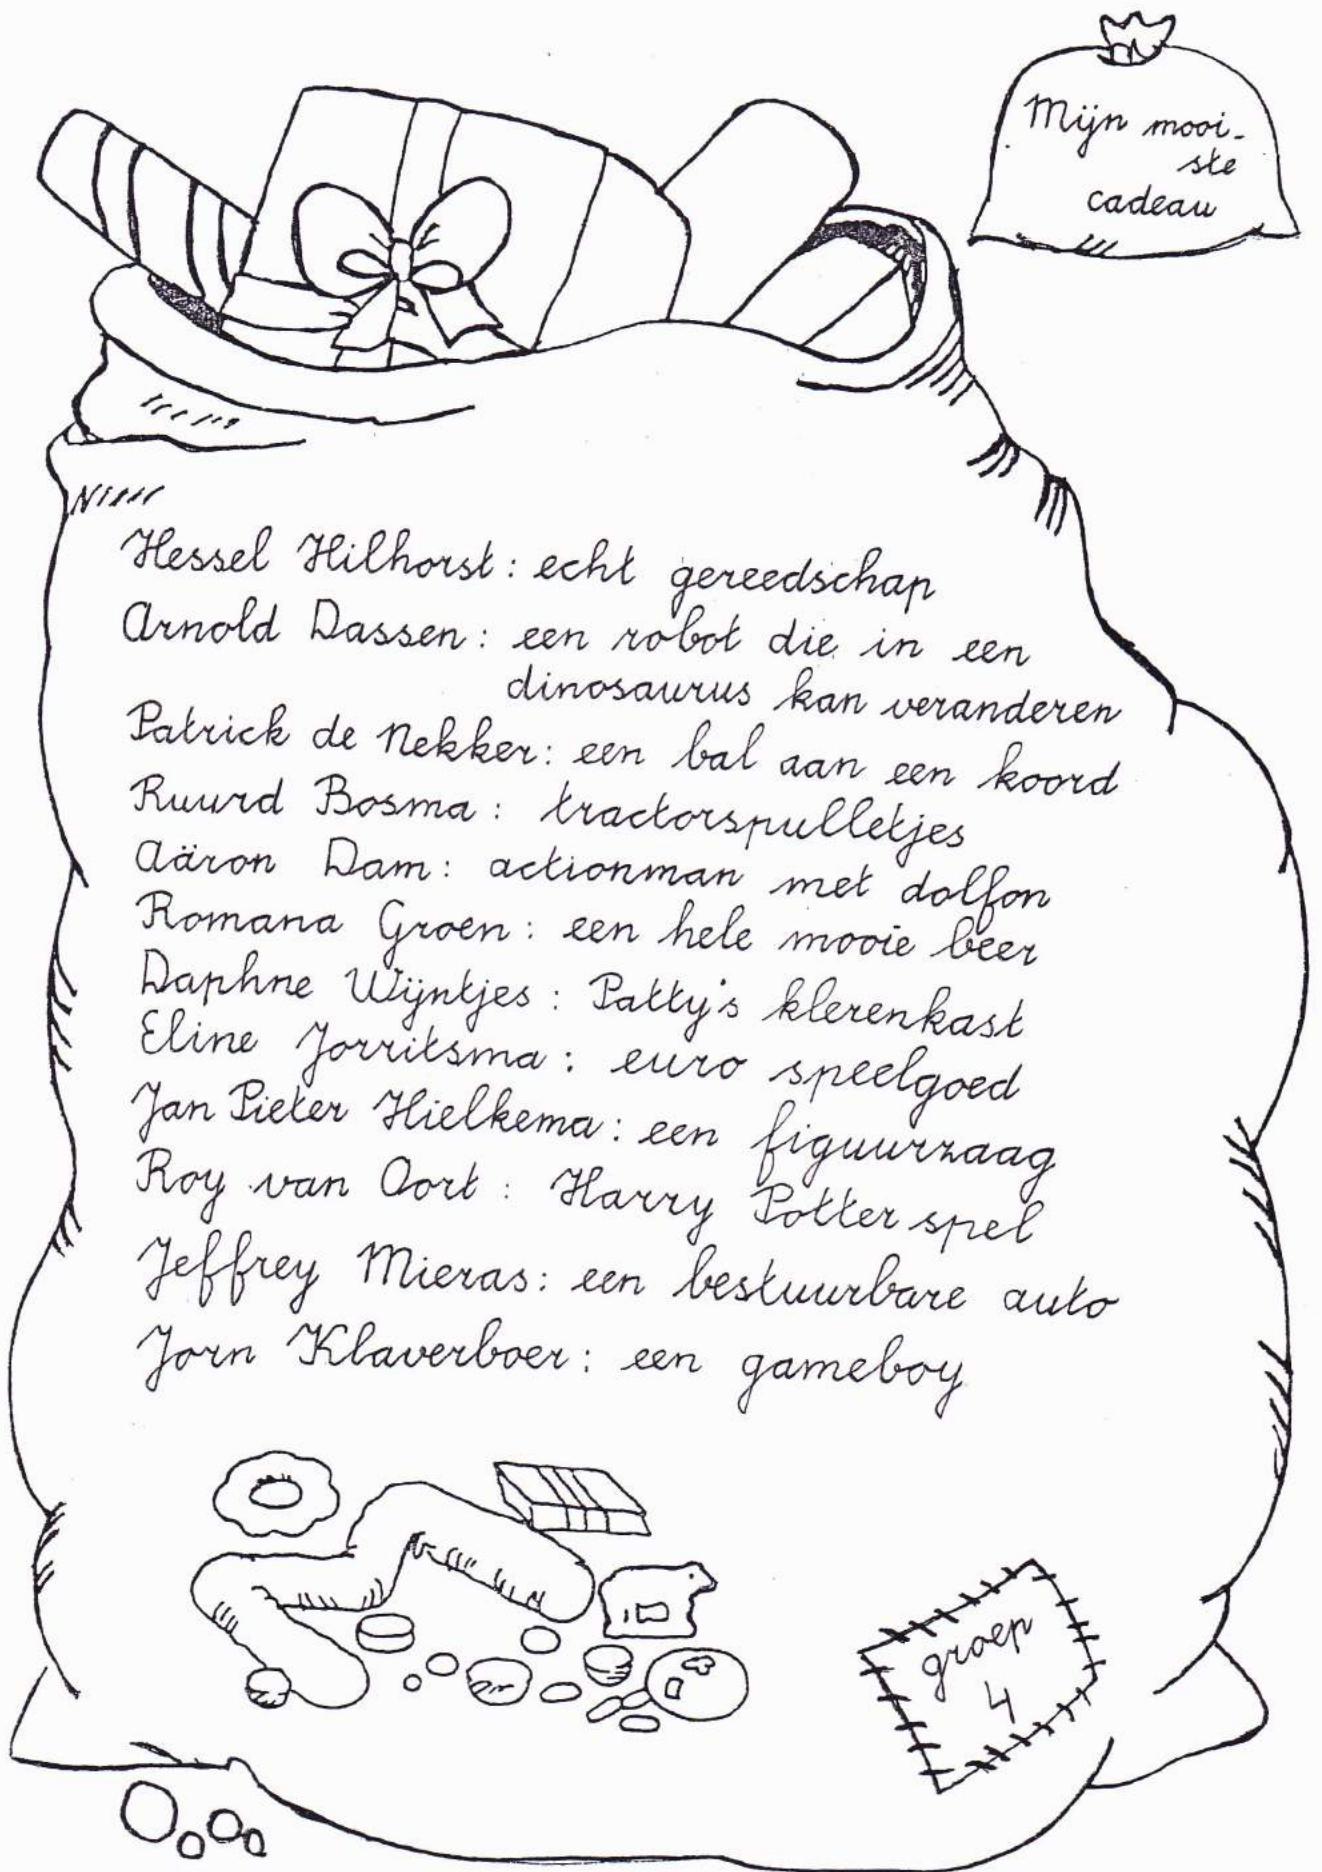 Mijn mooi-
ste
cadeau
Hessel Hilhorst: echt gereedschap
Arnold Dassen: een robot die in een
dinosaurus kan veranderen
Patrick de Nekker: een bal aan een koord
Ruurd Bosma: tractorspulletjes
Aäron Dam: actionman met dolfon
Romana Groen: een hele mooie beer
Daphne Wijntjes: Patty's klerenkast
Eline Jorritsma: euro speelgoed
Jan Pieter Hielkema: een figuurzaag
Roy van Oort: Harry Potter spel
Jeffrey Mieras: een bestuurbare auto
Jorn Klaverboer: een gameboy
groep
4